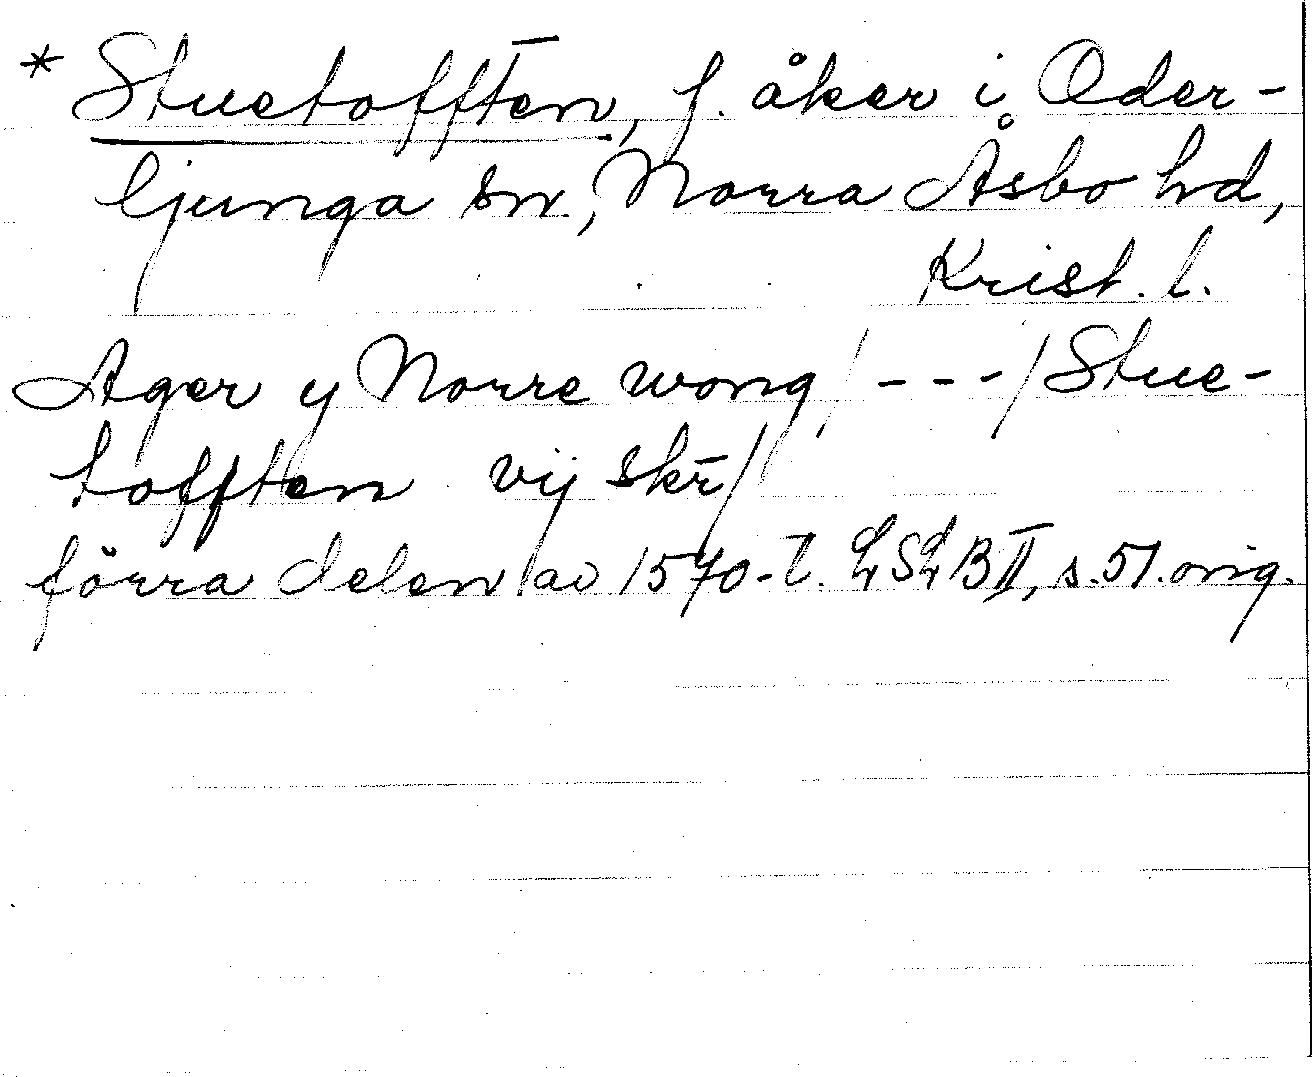 * Stuetofften, f. åker i Oder-
ljunga sn, Norra Åsbo hd,
Krist. l.
Ager y Norre wong / - - - / Stue-
tofften vij skr̄ /
förra delen av 1570-t. LSLB II, s. 51. orig.